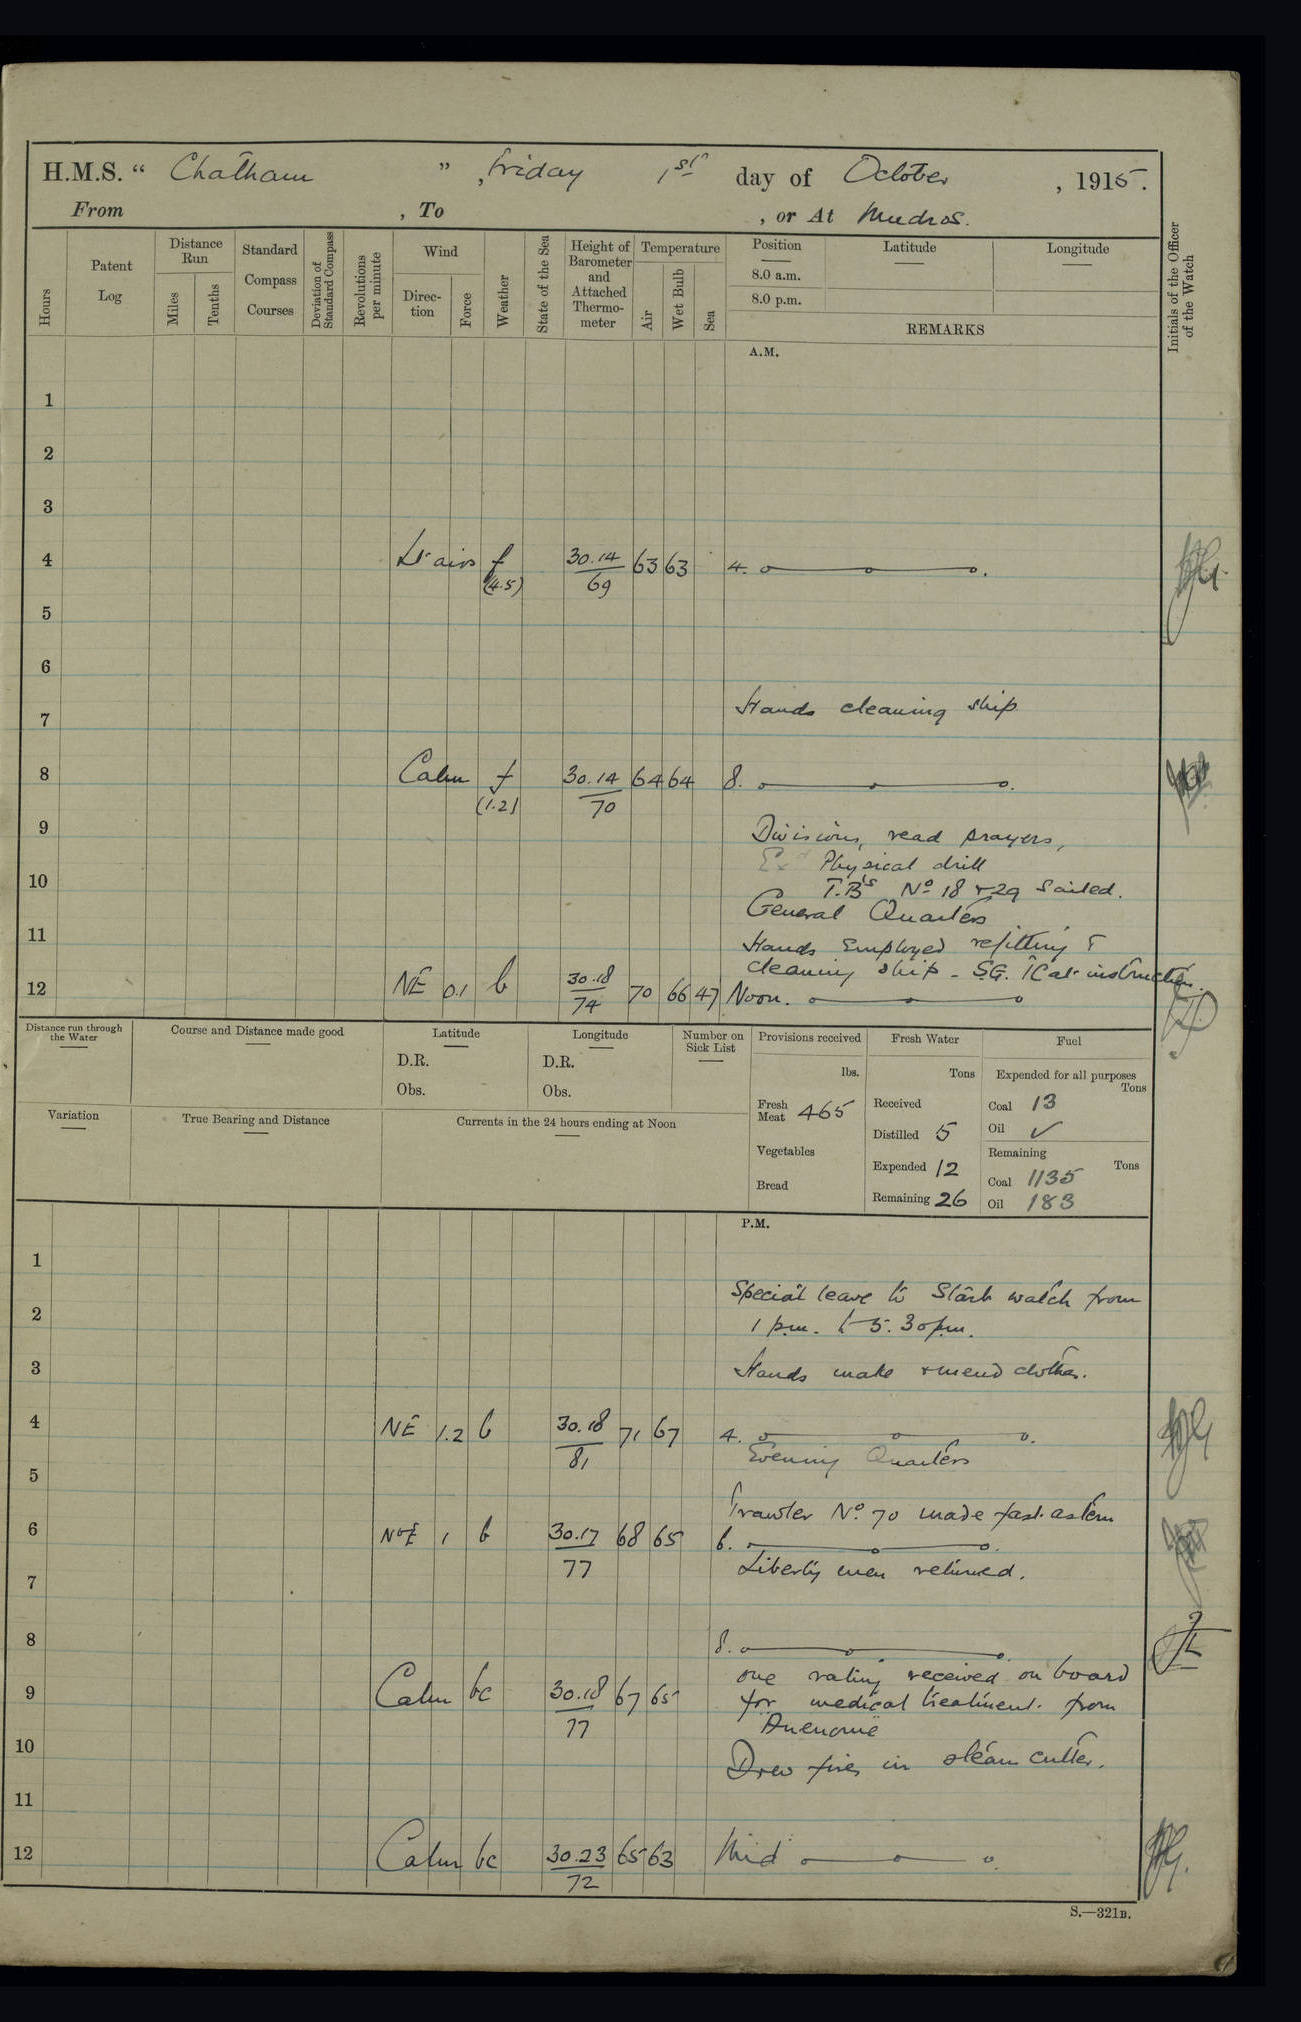 H.M.S. “ Chatham ” , Friday 1st day of October , 1915.
From , To , or At Mudros.
Hours
Patent Log
Distance Run
Miles
Tenths
Standard Compass Courses
Deviation of Standard Compass
Revolutions per minute
Wind
Direc- tion
Force
Weather
State of the Sea
Height of Barometer and Attached Thermo- meter
Temperature
Air
Wet Bulb
Sea
Position
8.0 a.m.
8.0 p.m.
Latitude
Longitude
REMARKS
Initials of the Officer of the Watch
A.M.
1
2
3
4 Lt airs f 30.14 63 63 4.
(4.5) 69
5
6
Hands cleaning ship
7
8 Calm f 30.14 64 64 8.
(1.2) 70
9 Divisions, read prayers,
Physical drill
10 T.B's No 18 + 29 Sailed.
General Quarters
11 Hands Employed refitting &
cleaning ship - S.G. instruction.
12 NE 0.1 b 30.18 70 66 47 Noon.
74
Distance run through the Water
Course and Distance made good
Latitude
D.R.
Obs.
Longitude
D.R.
Obs.
Number on Sick List
Provisions received
lbs.
Fresh Meat 465
Vegetables
Bread
Fresh Water
Tons
Received
Distilled 5
Expended 12
Remaining 26
Fuel
Expended for all purposes
Tons
Coal 13
Oil ✓
Remaining
Tons
Coal 1135
Oil 183
Variation
True Bearing and Distance
Currents in the 24 hours ending at Noon
P.M.
1
Special leave to Starb watch from
2 1 p.m. to 5.30 pm.
3 Hands make + mend clothes.
4 NE 1.2 b 30.18 71 67 4.
81
Evening Quarters
5
Trawler No. 70 made fast astern
6 NbE 1 b 30.17 68 65 6.
77
Liberty men returned.
7
8 8.
one rating received on board
9 Calm bc 30.18 67 65 for medical treatment from
77 "Anenome"
10 Drew fires in steam cutter.
11
12 Calm bc 30.23 65 63 Mid
72
S.—321B.